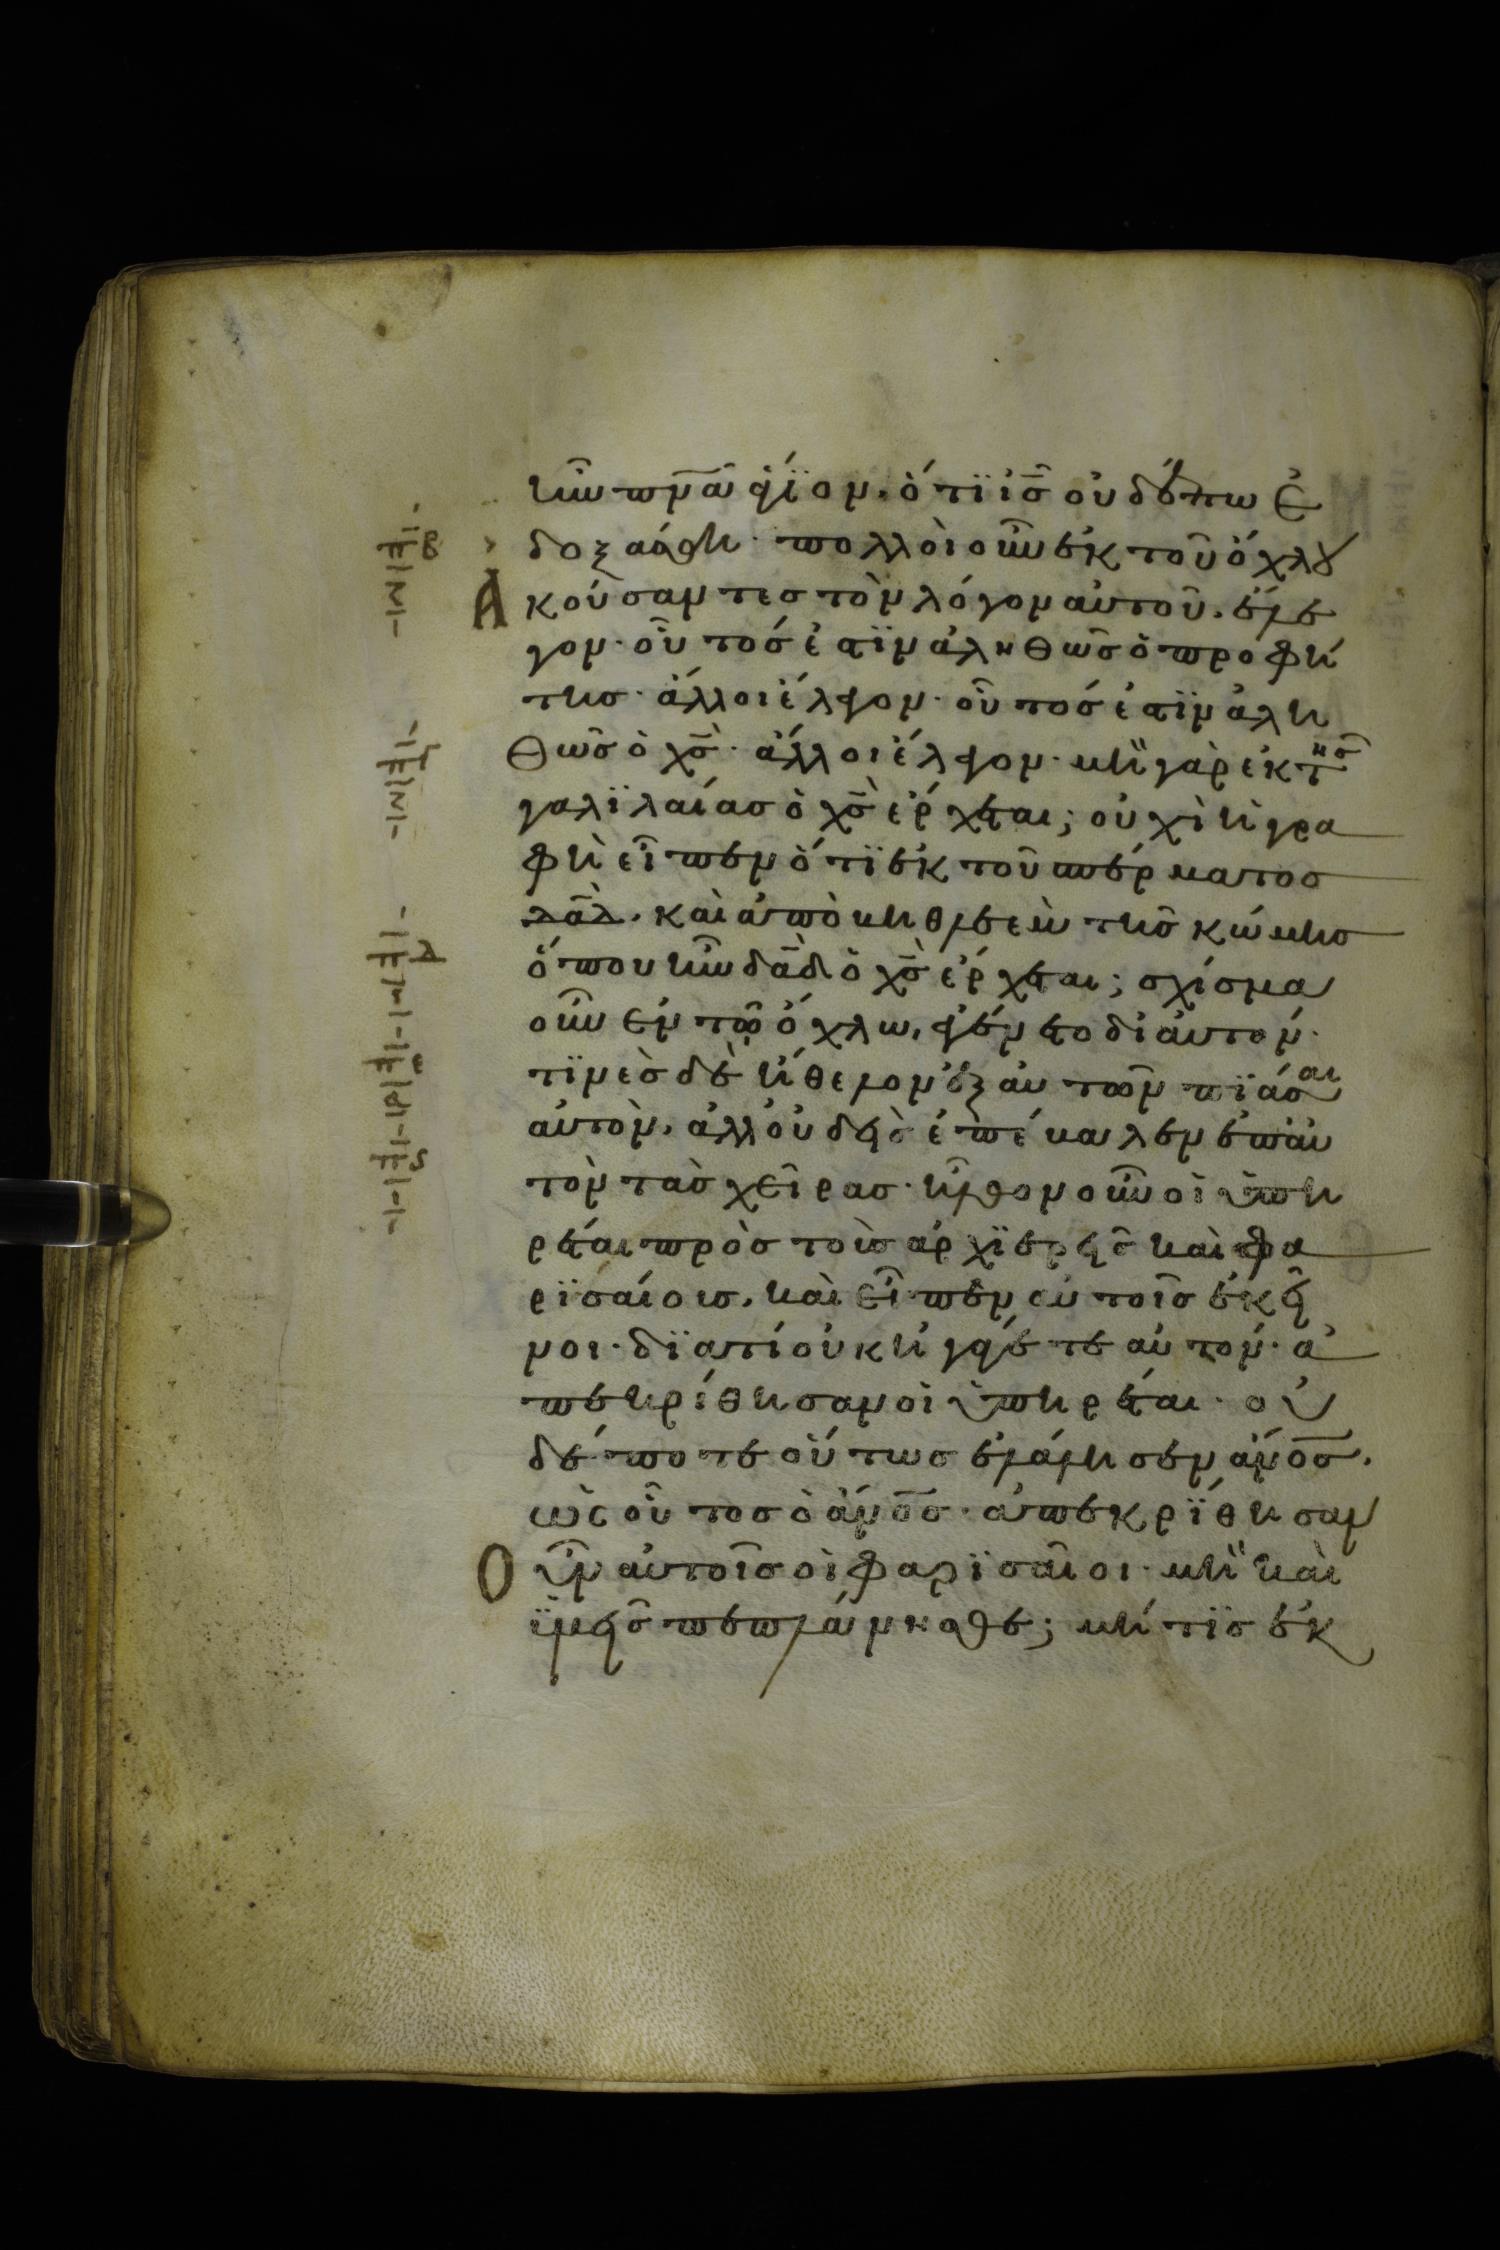 ἦν πνᾱ ἅγϊον. ὅτϊ ἰς̄ οὐδέπω ἐ
δοξάσθη· πολλοὶ οὖν ἐκ τοῦ ὄχλου
Ἀκούσαντες τὸν λόγον αὐτοῦ. ἔλε
γον· οὗτός ἐστϊν ἀληθῶς ὁ προφή
της· ἄλλοι ἔλεγον· οὗτός ἐστϊν ἀλη
θῶς ὁ χς̄· ἄλλοι ἔλεγον· μὴ γὰρ ἐκ τῆς
γαλϊλαίας ὁ χς̄ ἔρχεται; οὐχὶ ἡ γρα
φὴ εἶπεν ὅτϊ ἐκ τοῦ σπέρματος
δᾱδ. καὶ ἀπὸ βηθλεὲμ τῆς κώμης
ὅπου ἦν δᾱδ ὁ χς̄ ἔρχεται; σχίσμα
οὖν ἐν τῷ ὄχλω. ἐγένετο δι᾽ αὐτόν·
τϊνὲς δὲ ἤθελον ἐξ αὐτῶν πϊάσαι
αὐτὸν. ἀλλ᾽ οὐδεὶς ἐπέβαλεν ἐπ᾽ αὐ
τὸν τὰς χεῖρας· ἦλθον οὖν οἱ ὑπη
ρέται πρὸς τοὺς ἀρχϊερεῖς καὶ φα
ρϊσαίοις. καὶ εἶπεν αὐτοῖς ἐκεῖ
νοι· δϊατί οὐκ ἠγάγετε αὐτόν· ἀ
πεκρίθησαν οἱ ὑπηρέται· οὐ
δέποτε οὕτως ἐλάλησεν ἄνος̄.
ὡς οὗτος ὁ ἄνος̄· ἀπεκρϊθησαν
Οὖν αὐτοῖς οἱ φαρϊσαῖοι· μὴ καὶ
ϋμεῖς πεπλάνησθε; μή τϊς ἐκ